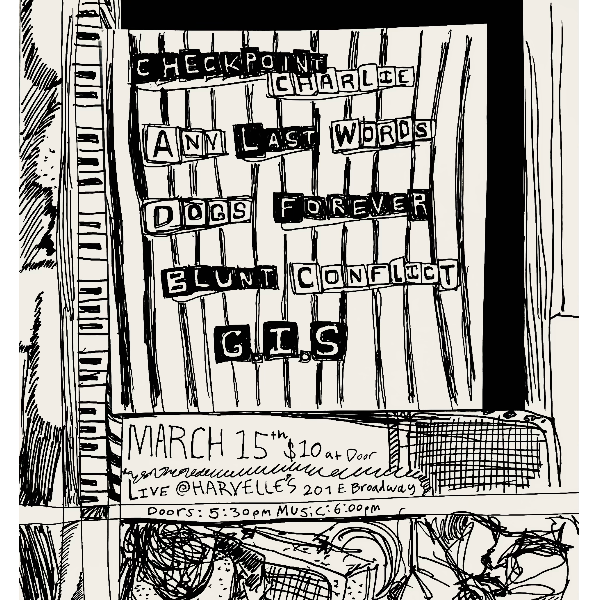 CHECKPOINT
CHARLIE
ANY LAST WORDS
DOGS FOREVER
BLUNT CONFLICT
G.I.S
MARCH 15th $10 at Door
LIVE @HARVELLE'S 201 E. Broadway
Doors: 5:30pm Music: 6:00pm